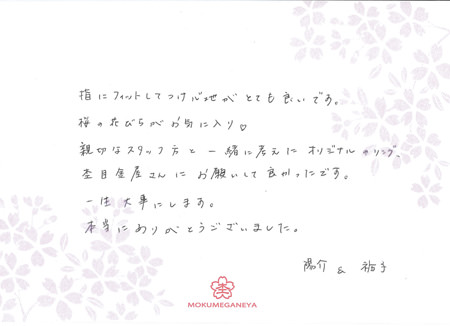 指にフィットしてつけ心地がとても良いです。
桜の花びらがお気に入り♡
親切なスタッフ方と一緒に考えたオリジナルのリング、
杢目金屋さんにお願いして良かったです。
一生大事にします。
本当にありがとうございました。
陽介 & 裕子
MOKUMEGANEYA